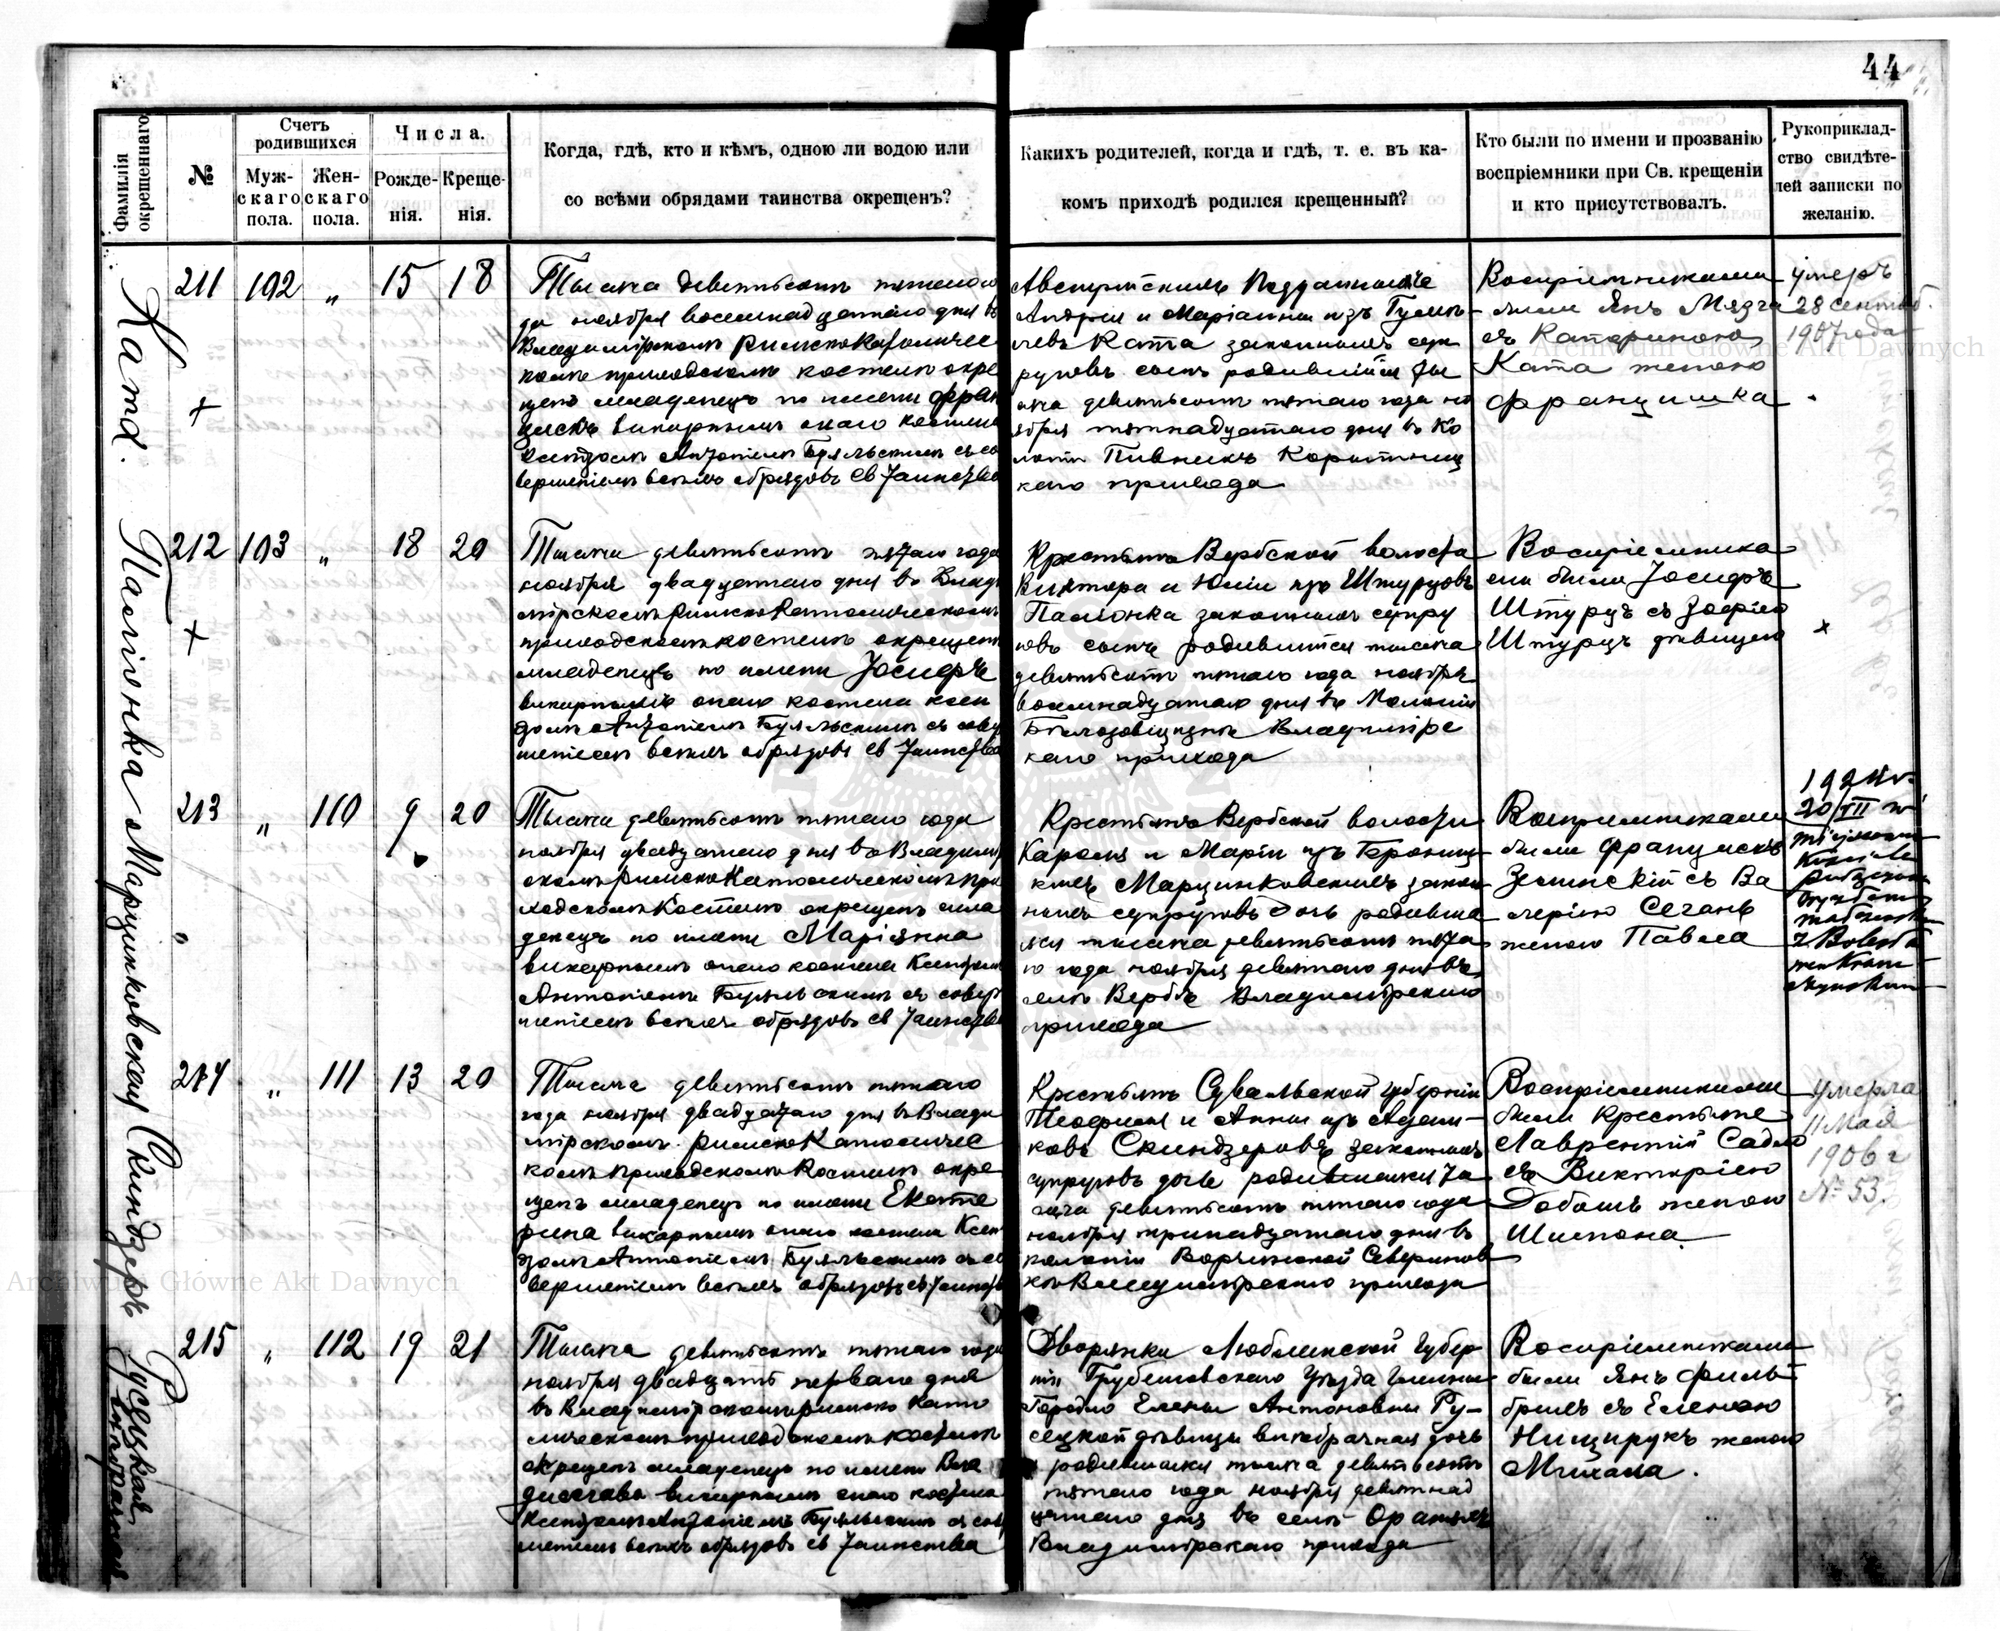 44
Фамилія
окрещеннаго
№
Счетъ
родившихся
Муж-
скаго
пола.
Жен-
скаго
пола.
Числа.
Рожде-
нія.
Креще-
нія.
Когда, гдѣ, кто и кѣмъ, одною ли водою или
со всѣми обрядами таинства окрещенъ?
Какихъ родителей, когда и гдѣ, т. е. въ ка-
комъ приходѣ родился крещенный?
Кто были по имени и прозванію
воспріемники при Св. крещеніи
и кто присутствовалъ.
Рукоприклад-
ство свидѣте-
лей записки по
желанію.
Ката.
211 192 „ 15 18
Тысяча девятьсотъ пятаго го
да ноября восемнадцатаго дня въ
Владимірскомъ Римско Католичес
комъ приходскомъ костелѣ окре
щенъ младенецъ по имени Фран
цискъ викарнымъ онаго костела
Ксендзомъ Антоніемъ Буяльскимъ съ со
вершеніемъ всѣхъ обрядовъ Св Таинства
Австрійскихъ Подданныхъ
Андрея и Маріанны изъ
Ката законныхъ суп
руговъ сынъ родившійся ты
сяча девятьсотъ пятаго года но
ября пятнадцатаго дня въ Ко
лоніи Пивникъ Корытниц
каго прихода
Воспріемниками
были Янъ Мязга
съ Катериною
Ката женою
Франчишка
умеръ
28 сентяб.
1907 года
Пасіонка
212 193 „ 18 20
Тысяча девятьсотъ пятаго года
ноября двадцатаго дня въ Влади
мірскомъ Римско Католическомъ
приходскомъ костелѣ окрещенъ
младенецъ по имени Іосифъ
викарнымъ онаго костела ксен
дзомъ Антоніемъ Буяльскимъ съ совер
шеніемъ всѣхъ обрядовъ Св Таинства
Крестьянъ Вербской волости
Виктора и Юліи изъ Штурцовъ
Пасіонка законныхъ супру
говъ сынъ родившійся тысяча
девятьсотъ пятаго года ноября
восемнадцатаго дня въ Колоніи
Владимірс
каго прихода
Воспріемника
ми были Іосифъ
Штурцъ съ Зофіею
Штурцъ дѣвицею
Марцинковская
213 „ 110 9 20
Тысяча девятьсотъ пятаго года
ноября двадцатаго дня въ Владимір
скомъ Римско Католическомъ при
ходскомъ Костелѣ окрещенъ мла
денецъ по имени Маріянна
викарнымъ онаго костела Ксендзомъ
Антоніемъ Буяльскимъ съ совер
шеніемъ всѣхъ обрядовъ Св Таинства
Крестьянъ Вербской волости
Кароля и Маріи изъ
Марцинковскихъ закон
ныхъ супруговъ дочь родивша
яся тысяча девятьсотъ пята
го года ноября девятаго дня въ
селѣ Вербѣ Владимірскаго
прихода
Воспріемниками
были Францискъ
Зелинскій съ Ва
леріею Сегань
женою Павла
20/VII
Скиндзеръ
214 „ 111 13 20
Тысяча девятьсотъ пятаго
года ноября двадцатаго дня въ Влади
мірскомъ Римско Католичес
комъ приходскомъ Костелѣ окре
щенъ младенецъ по имени Екате
рина викарнымъ онаго костела Ксен
дзомъ Антоніемъ Буяльскимъ съ со
вершеніемъ всѣхъ обрядовъ Св Таинства
Крестьянъ Сувальской губерніи
Теофиля и Анны изъ Адам-
ковъ Скиндзеровъ законныхъ
супруговъ дочь родившаяся ты
сяча девятьсотъ пятаго года
ноября тринадцатаго дня въ
колоніи Ворчинской Северинов
кѣ Владимірскаго прихода
Воспріемниками
были Крестьяне
Лаврентій Садло
съ Викторіею
Добошъ женою
Шимона
Умерла
11 Мая
1906 г
№ 53.
Русецкая
внѣбрачная
215 „ 112 19 21
Тысяча девятьсотъ пятаго года
ноября двадцать перваго дня
въ Владимірскомъ Римско Като
лическомъ приходскомъ костелѣ
окрещенъ младенецъ по имени Вла
дислава викарнымъ онаго костела
Ксендзомъ Антоніемъ Буяльскимъ съ совер
шеніемъ всѣхъ обрядовъ Св Таинства
Дворянки Люблинской Губер
ніи Грубешовскаго Уѣзда Гмины
Городло Елены Антоновны Ру-
сецкой дѣвицы внѣбрачная дочь
родившаяся тысяча девятьсотъ
пятаго года ноября девятнад
цатаго дня въ селѣ
Владимірскаго прихода
Воспріемниками
были Янъ Филь
брихъ съ Еленою
Нищирукъ женою
Михала.
Archiwum Główne Akt Dawnych
Archiwum Główne Akt Dawnych